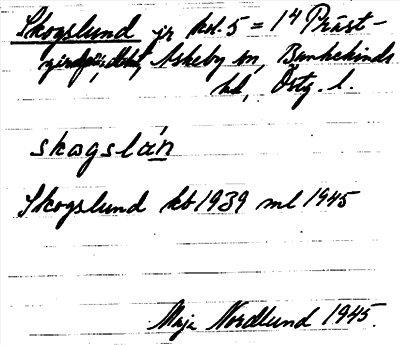 Skogslund jr hd. 5 = 1⁴ Präst-
Askeby sn, Bankekinds
hd, Östg. l.
skogslán
Skogslund kb 1939 ml 1945
Maja Nordlund 1945.